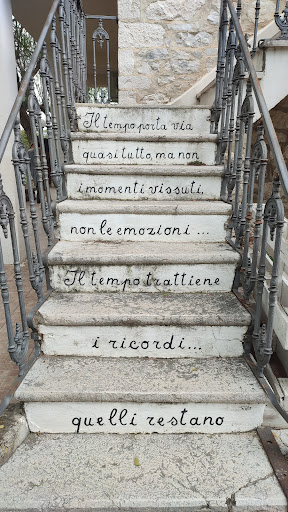 Il tempo porta via
quasi tutto, ma non
i momenti vissuti,
non le emozioni ...
Il tempo trattiene
i ricordi...
quelli restano